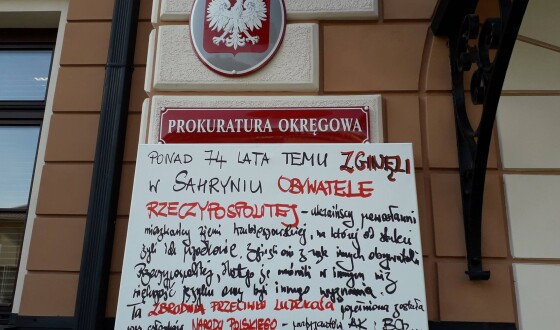 PROKURATURA OKRĘGOWA
PONAD 74 LATA TEMU ZGINĘLI
W SAHRYNIU OBYWATELE
RZECZYPOSPOLITEJ - ukraińscy prawosławni
mieszkańcy ziemi hrubieszowskiej, na której od stuleci
żyli ich przodkowie. Zginęli oni z rąk innych obywateli
Rzeczypospolitej, dlatego że mówili w innym niż
większość języku oraz byli innego wyznania.
Ta ZBRODNIA PRZECIWKO LUDZKOŚCI popełniona została
przez członków NARODU POLSKIEGO - partyzantów AK, BCh